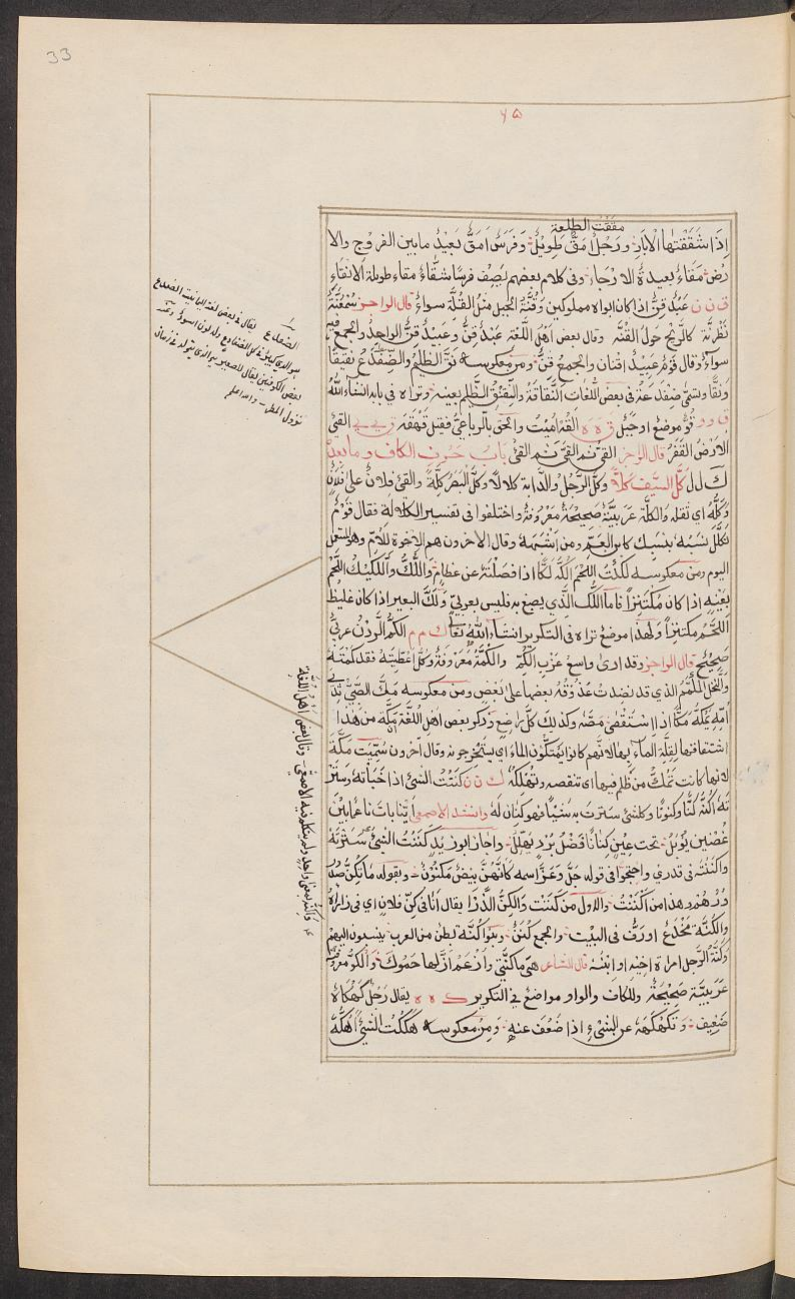 33
۶۵
مققت الطلعة
اِذَا شَقَقْتَها الْابَار ورَجُل مَقّ طَوِيْل وَفَرَس اَمَقّ بَعِيْد مابين الفروج والا
رْض مَقاء بعيدة الارجاء وفى كلام بعضهم يَصِف فرسًا شقّاء مقاء طويلة الانقاء
ق ن ن عَبْد قِنّ اذا كان ابواه مملوكين وَقُنَّة الجبل مثل القُلَّة سواء قال الراجز سِمْعَنَّةً
نِظْرَنَّة كالريح حول القُنّه وقال بعض اَهْل اللّغة عَبْد قِنّ وَعَبِيْد قِنّ الواحد والجمع فيه
سواء وقال قَوْم عَبِيْد اَقنان والجمع قِنّ ومن معكوسه نَقّ الظّلِيْم والضِّفْدَع نقِيقًا
ونقّا وتسمّى ضفدعة في بعض اللُّغات النَّقاقة والنِّقْنِق الظّليم بعينه وتراه في بابه انشاء الله
ق و و قَوّ موضع او جَبَل ق ه ه القه اُمِيْتَ والحق بالرباعيّ فقيل قَهْقَهَ ق ى ى القيّ
الاَرْض القَفْر قال الراجز القيّ ثم القيّ ثم القيّ باب حرف الكاف وما بعده
ك ل ل كَلّ السَّيْف كلاًّ وكلّ الرَّجُل والدَّابة كلالاً وكلّ البَصَر كِلّةً والقى فلانٌ على فلانٍ
وكَلّهُ اى ثقله والكلّة عَرَبِيَّةٌ صَحِيْحَةٌ مَعْرُوفَة واختلفوا فى تفسير الكلالة فقال قَوْم
تكلّل نسَبُه بنسَبك كابن العَمّ ومن اَشْبَهَه وقال الآخرون هم الاخوة للاُمّ وهو المستعمل
اليوم ومن معكوسه لَكَكْتُ اللَّحْمَ اَلُكُّه لَكًّا اذا فصَلْتَهُ عن عظامه واللُّكّ واللَّكِيْك اللَّحْم
بعَيْنِه اذا كان مُكْتَنِزًا فاما اللُّكّ الَّذي يصبغ به فليس بعربيّ ولُكَّ البعير اذا كان غليظ
اللَّحم مكتنِزاً ولهذا موضع تراه فى التكرير انشاء الله تعالى ك م م الكُمّ الرُدْن عَربيّ
صَحِيْح قال الراجز وقد ارى واسع عَزْب الكُمّ والكُمّة مَعْرُوفَة وكلّ ما غَطّيْتَه فقد كَمَمْتَه
والنَّخل المُكمَّم الذي قد نضدت عُذُوقُه بعضها على بَعْضٍ ومن معكوسه مَكَّ الصَّبِيّ ثَدْى
اُمّه يَمُكُّه مَكًّا اذا اِسْتَقْصَى مَصَّه وكذلك كُلّ راضع وذكر بعض اهل اللُّغة ان مَكّة من هَذا
اشتقاقها لقلّة الماء بها لانّهم كانوا يَمْتَكّون الماء اى يستخرجونه وقال اخرون سُمِّيَت مَكّة
لانها كانت تَمُكّ من ظلم فيها اى تنقصه وتُهْلكُه ك ن ن كَنَنْت الشئ اذا خَبأته وسَتَرْ
تَه اَكُنّه كَنًّا وكنونًا وكل شئ سترت به شَيْئًا فهو كِنان له وانشد الاصمعى
غُصْنين يُوْبَل تحت عين كنانُنا فَضْل بُرْد يُهَلّل واجاز ابو زيد كَنَنْتُ الشئ سترته
واكننته فى قدري واحتجّوا فى قوله جَلّ وعَزّ اسمه كَاَنَّهُنَّ بَيْضٌ مَكْنُوْنٌ وبقوله مَا تُكِنُّ صُدُ
وْرُهُم هذا من اَكْنَنْتُ والاول من كَنَنْتُ والكِنّ الذَّرَا يقال اَنا فى كِنّ فلان اى فى ذراه
والكُنّة مُخْدَع او رَفّ فى البيت والجمع كُنَنٌ وبنو كُنّة بطن من العرب ينسبون اليهم
وكَنّة الرَّجل امراة اخيه او ابنه قال الشاعر هيَ ما كَنَّتى واَزْعَمُ اَنّى لها حَمُوْ والكوّ معروفة
عَرَبِيَّة صَحِيْحَةٌ وللكاف والواو مواضع في التكرير ك ه ه يقال رَجُل كَهْكَاهٌ
ضَعِيف وتَكَهْكَهَ عن الشئ اذا ضَعُفَ عنه ومن معكوسه هَكَكْتُ الشَّيْ اَهُكُّه
الضفدع يقال فى بعض لغة اليمانية الضفدع
وقال بعض اَهْل اللُّغَة